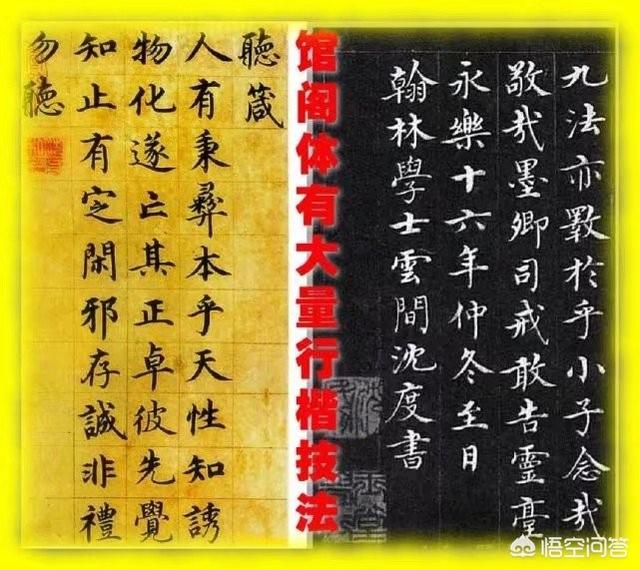 九法亦斁於乎小子念哉
敬哉墨卿司戒敢告靈臺
永樂十六年仲冬至日
翰林學士雲間沈度書
馆阁体有大量行楷技法
聽箴
人有秉彝本乎天性知誘
物化遂亡其正卓彼先覺
知止有定閑邪存誠非禮
勿聽
悟空问答